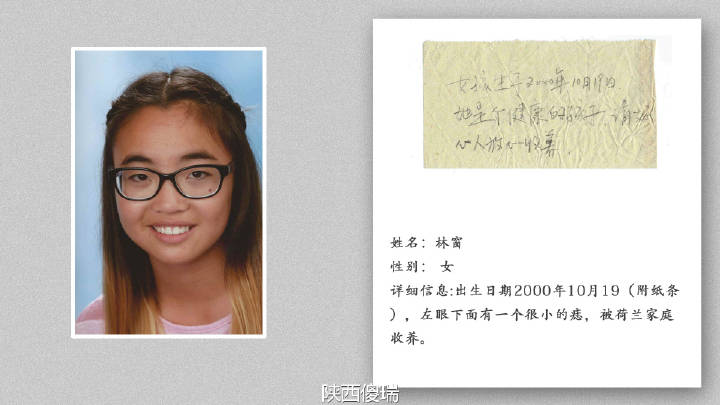 女孩生于2000年10月19日
她是个健康的孩子,请好
心人放心收养.
姓名：林窗
性别： 女
详细信息:出生日期2000年10月19（附纸条
），左眼下面有一个很小的痣，被荷兰家庭
收养。
陕西傻瑞